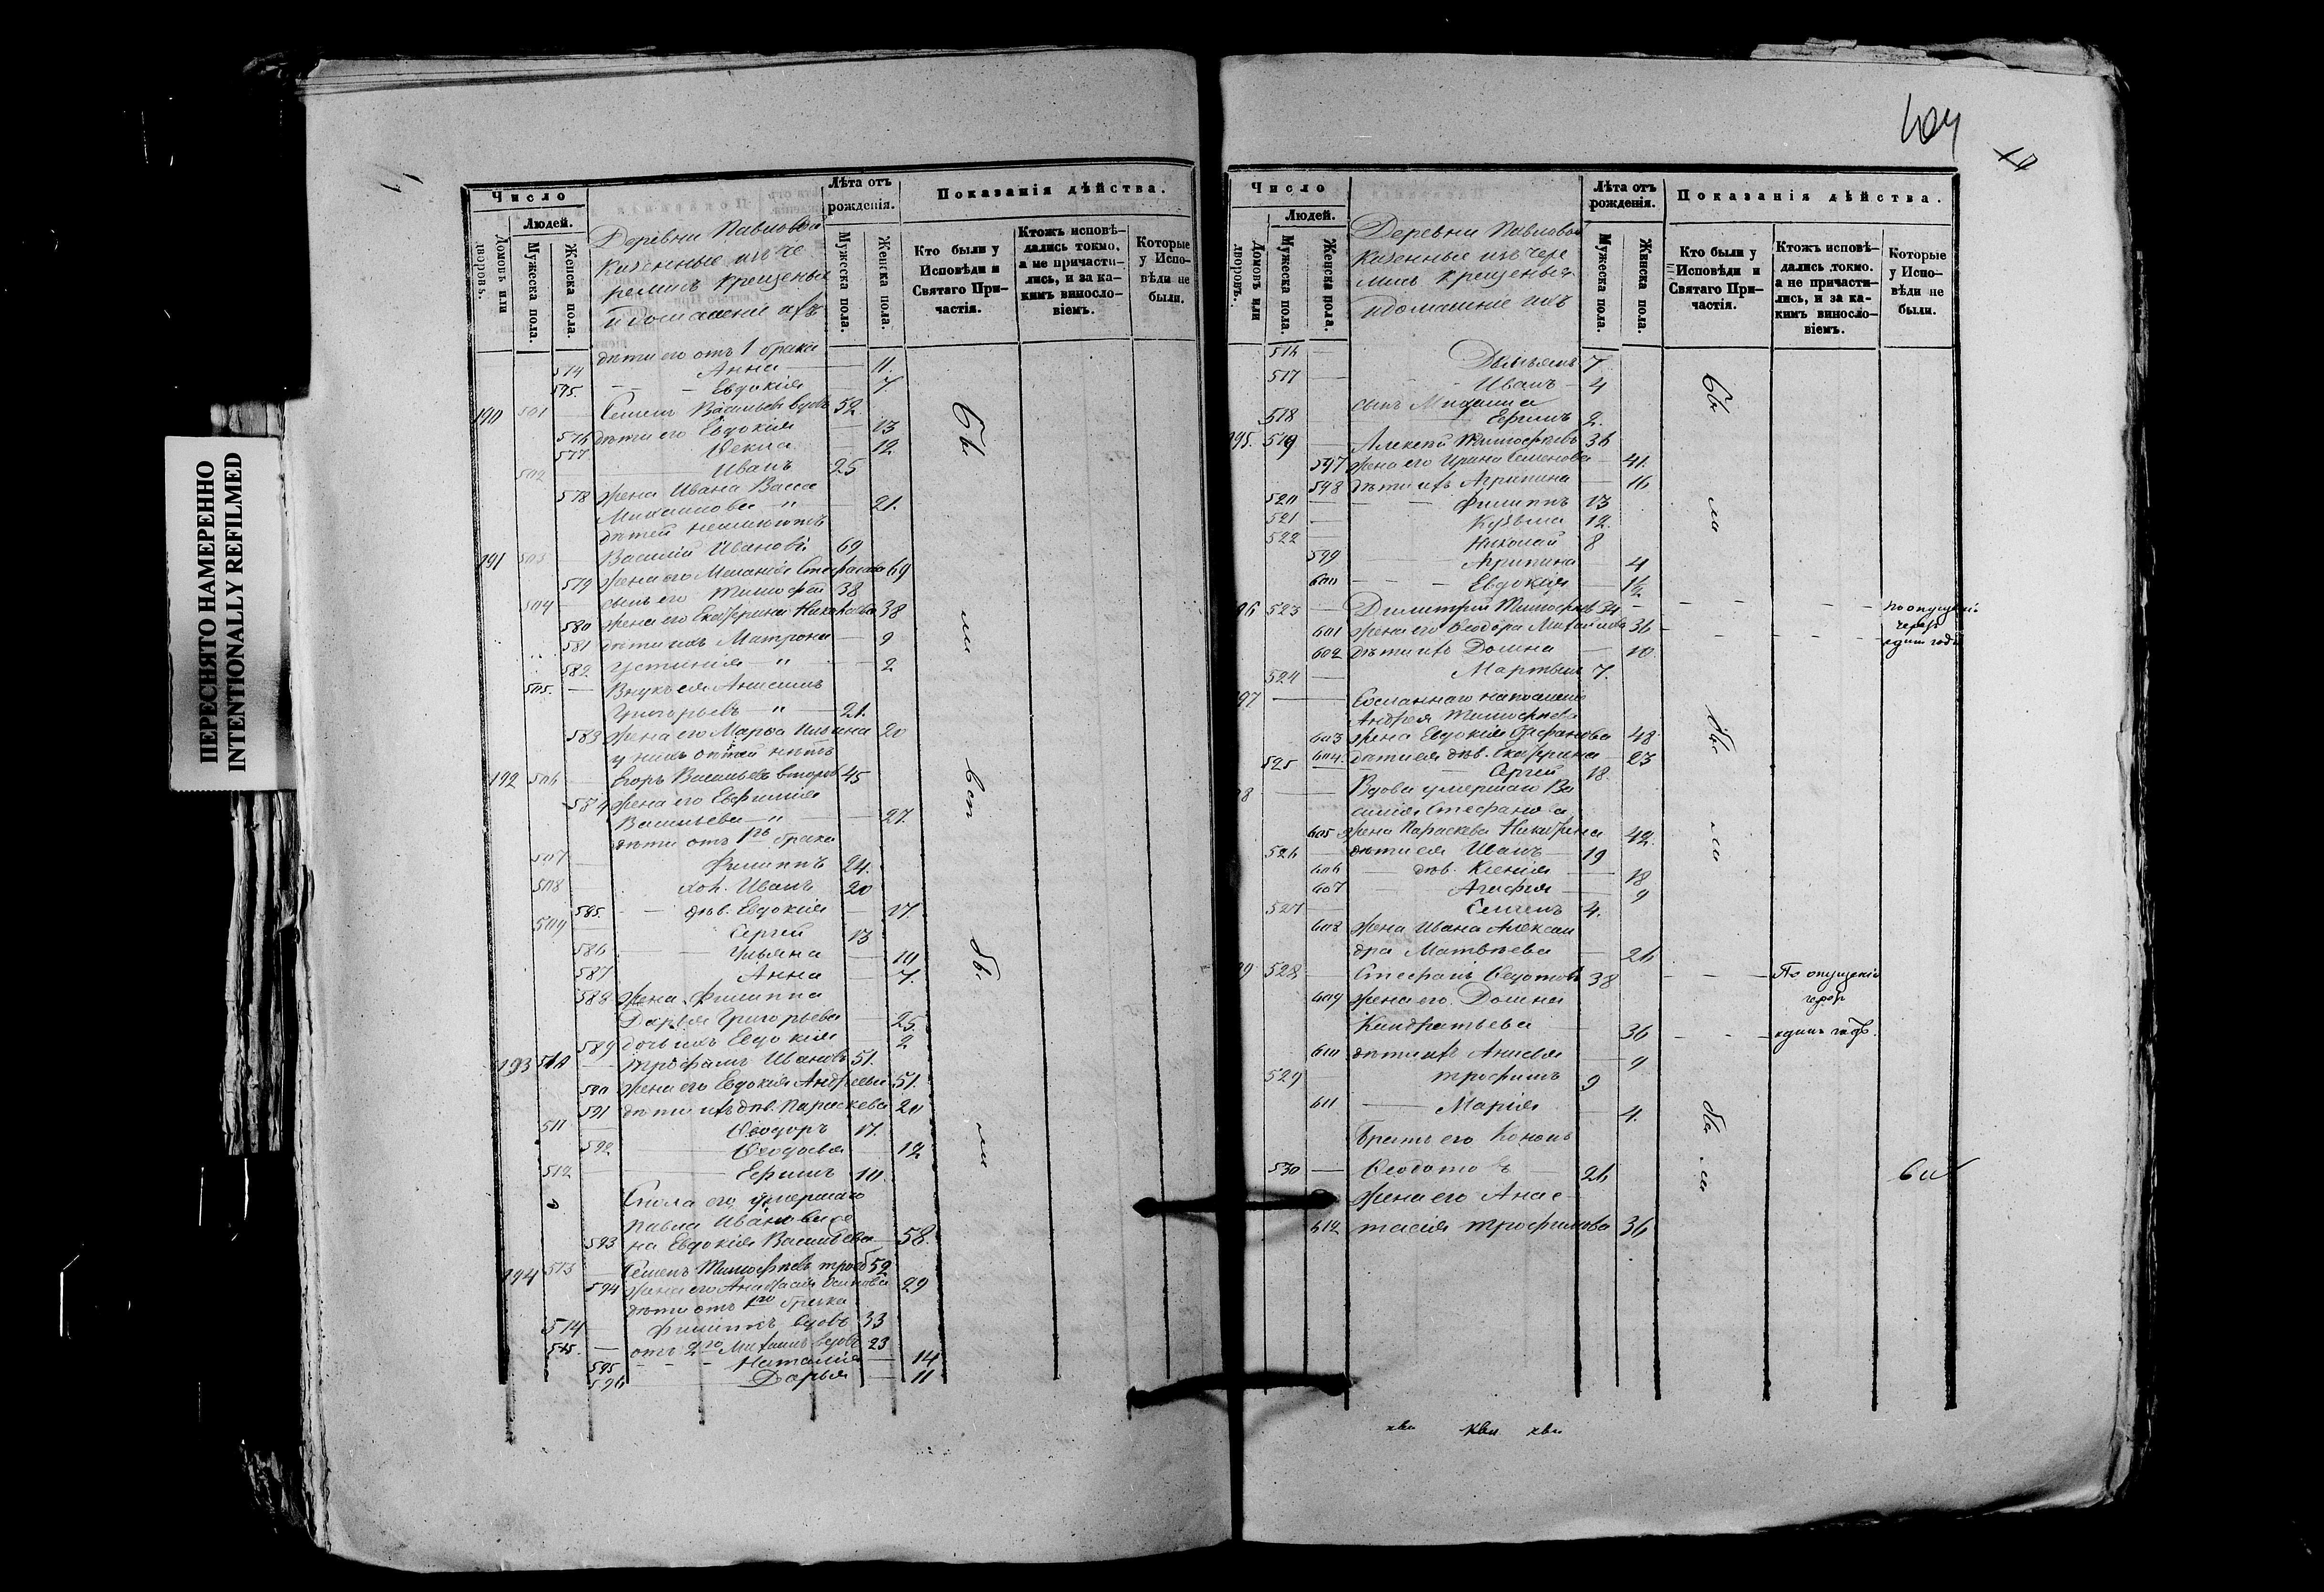 ПЕРЕСНЯТО НАМЕРЕННО
INTENTIONALLY REFILMED
Число
Людей.
Домовъ или дворовъ.
Мужеска пола.
Женска пола.
Деревни Павловой
казенные изъ че
ремисъ крещеные
и домашніе ихъ
Лѣта отъ рожденія.
Мужеска пола.
Женска пола.
Показанія дѣйства.
Кто были у Исповѣди и Святаго Причастія.
Ктожъ исповѣдались токмо, а не причастились, и за какимъ винословіемъ.
Которые у Исповѣди не были.
дѣти его отъ 1 брака
574 Анна 11.
575. Евдокія 7.
190 501 Семенъ Васильевъ вдовъ 52.
576 дѣти его Евдокія 13
577 Ѳекла 12
502 Иванъ 25
578 жена Ивана Васса
Михаилова " 21.
дѣтей неимеютъ
191 503 Василій Ивановъ 69
579 жена его Меланія Стефанова 69
504 сынъ его Тимофей 38
580 жена его Екатерина 38
581 дѣти ихъ Матрона 9
582 Устинія " 2
505. Внукъ ея Анисимъ
Григорьевъ " 21.
583 жена его Марѳа 20
у нихъ дѣтей нѣтъ
192 506 Егоръ Васильевъ вторob 45
584 жена его Евфимія
Васильева " 27.
дѣти отъ 1го брака
507 Филиппъ 24.
508 хол. Иванъ 20
585. дѣв. Евдокія 17.
509 Сергей 13
586 Ульяна 10
587 Анна 7.
588 жена Филиппа
Дарья Григорьева 25.
589 дочь ихъ Евдокія 2
193 510 Трофимъ Ивановъ 51.
590 жена его Евдокія Андреева 51.
591 дѣти ихъ дѣв. Параскева 20
511 Ѳеодоръ 17.
592 Ѳеодосья 12
512 Ефимъ 10.
Сноха его умершаго
Павла Иванова же
593 на Евдокія Васильева 58.
194 513 Семенъ Тимофеевъ 52
594 жена его Анастасія Осипова 29
дѣти отъ 1го брака
514 Филиппъ вдовъ 33
515. отъ 2го Михаилъ вдовъ 23
595 Наталія 14
596 Дарья 11
были вси были
Число
Людей.
Домовъ или дворовъ.
Мужеска пола.
Женска пола.
Деревни Павловой
казенные изъ чере
мисъ крещеные
и домашніе ихъ
Лѣта отъ рожденія.
Мужеска пола.
Женска пола.
Показанія дѣйства.
Кто были у Исповѣди и Святаго Причастія.
Ктожъ исповѣдались токмо, а не причастились, и за какимъ винословіемъ.
Которые у Исповѣди не были.
516 Демьянъ 7
517 Иванъ 4
сынъ Михаила
518 Ефимъ 2.
195. 519 Алексѣй Тимофеевъ 36
597 жена его Ирина Семенова 41.
598 дѣти ихъ Агрипина 16
520 Филиппъ 13
521 Кузьма 12.
522 Николай 8
599 Агрипина 4
600 Евдокія 1½
96 523 Димитрій Тимофеевъ 34 по опущенію
601 жена его Ѳеодора Михаилова 36 чрезъ
602 дѣти ихъ Домна 10. одинъ годъ
524 Мартынъ 7.
97 Сосланнаго на поселеніе
Андрея Тимофеева
603 жена Евдокія Стефанова 48
604. дѣти ея дѣв. Екатерина 23
525 Сергей 18.
98 Вдова умершаго Ва
силія Стефанова
605 жена Параскева 42.
526 дѣти ея Иванъ 19
606 дѣв. Ксенія 18
607 Агафья 9
527 Семенъ 4.
608 жена Ивана Алексан
дра Матвѣева 26
99 528 Стефанъ Ѳедотовъ 38 По опущенію
609 жена его Домна чрезъ
Кандратьева 36 одинъ годъ.
610 дѣти ихъ Анисья 9
529 Трофимъ 9
611 Марія 4.
Братъ его Кононъ
530 Ѳеодотовъ 26
жена его Анас
612 тасія Трофимова 36
были были были